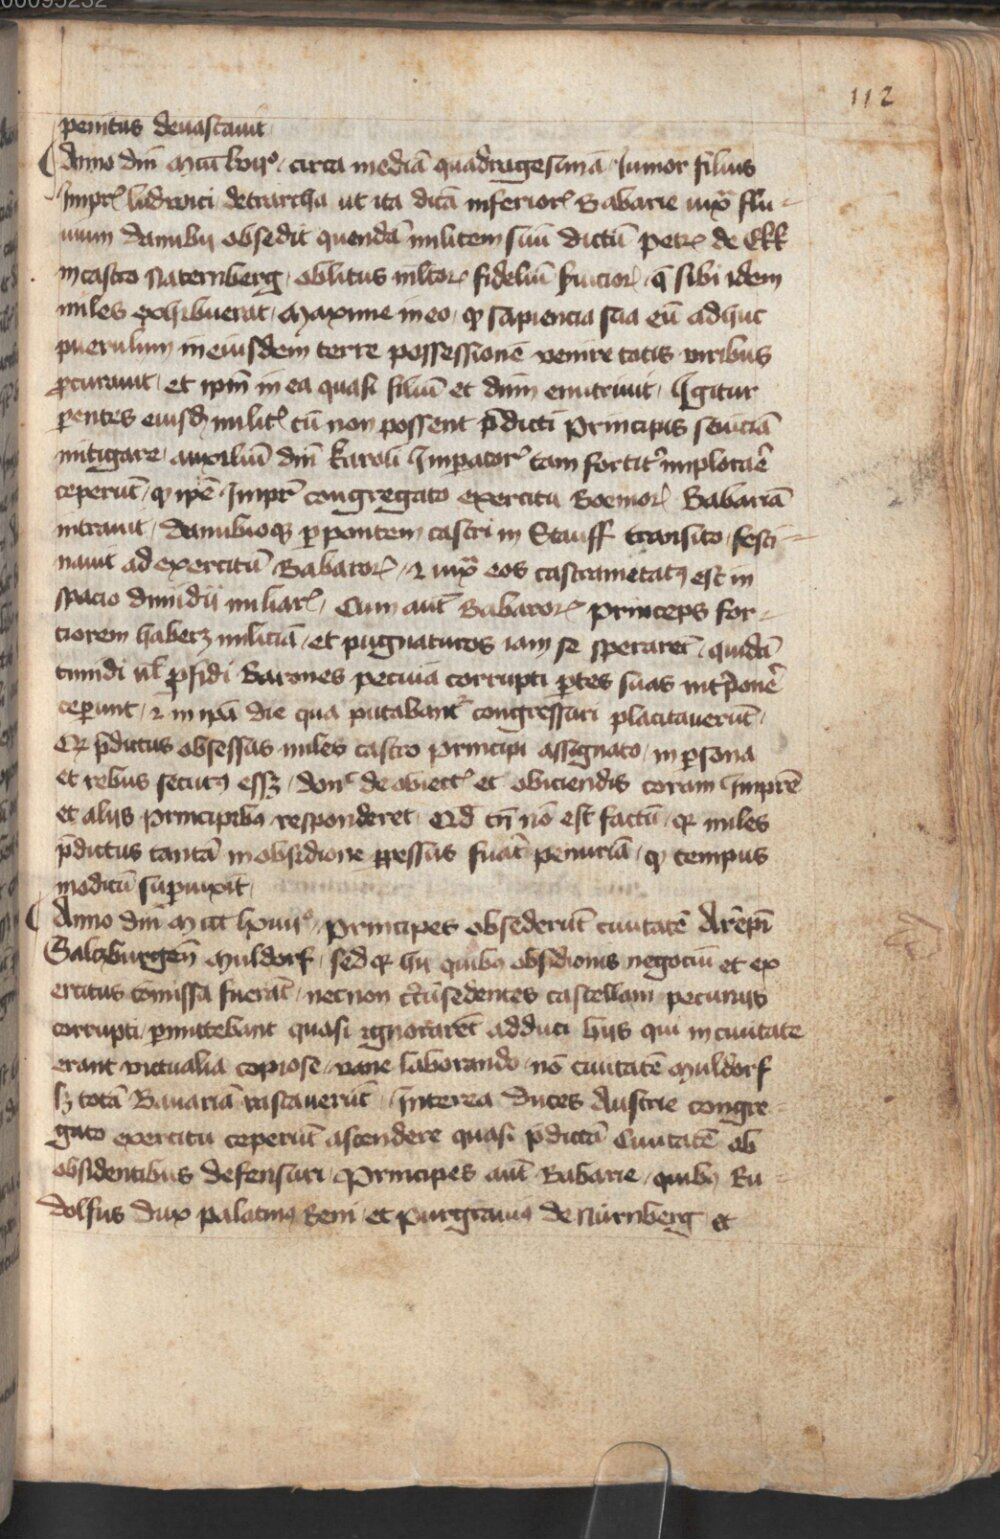 00095232
112
penitus devastavit
Anno dni mccclvijº circa mediā quadragesimā Junior filius
Impr̃ ludwici detrarcha ut ita dicā inferior̃ Babarie iuxͣ flu-
uium danubij obsedit quendā militem suū dictū petr̃ de Ekk
in castro Naternberg oblitus mltor̃ fideliū seruicior̃ q̄ sibi idem
miles exhibuerat maxime in eo qꝫ sapiencia sua eū adhuc
puerulum in eiusdem terre possessionē venire totis viribus
ꝓcurauit et ipm̄ in ea quasi filiū et dnm enutriuit Igitur
ꝑentes eiusdꝫ milit̃ cū non possent p̄dicti Principis seuiciā
mitigare auxiliū dni karoli Imperator̃ tam fortit̃ implorar̄e
ceperūt qꝫ ipē Impr̃ congregato exercitu Boemor̃ Babariā
intrauit danubioqꝫ ꝑ pontem castri in Stauff transito festi-
nauit ad exercitū Babaror̃ ⁊ iuxͣ eos castrametatꝯ est in
spacio dimidij miliar̃ Cum aut̄ Babaror̃ princeps for-
ciorem haberꝫ miliciā et pugnaturos iam se sperarēt quidā
timidi vl̄ ꝑfidi Barones pecunia corrupti ꝑtes suas int̃ponē
ceperunt ⁊ in ipā die qua putabant̃ congressuri placitauerūt
Qꝫ p̄dictus obsessus miles castro principi assignato in ꝑsona
et rebus securꝯ essꝫ don̄c de obiect̃ et obiciendis coram Imprē
et alijs principibꝯ responderet Qd̄ tn̄ nō est factū qꝫ miles
p̄dictus tantā in obsidione ꝑpessus fuāt penuriā qꝫ tempus
modicū suꝑuixit
Anno dni mccc lviijº principes obsederūt ciuitatē Arēpī
Salczburgeñ Muldorf sed qꝫ hij quibꝯ obsidionis negociū et ex
ercitus cōmissa fuerāt necnon circūsedentes castellani pecunijs
corrupti ꝑmittebant quasi ignorarēt adduci hijs qui in ciuitate
erant victualia copiose vane laborando nō ciuitatē Muldorf
sꝫ totā Bauariā vastauerūt Interea Duces Austrie congre-
gato exercitu ceperūt ascendere quasi p̄dictā Ciuitatē ab
obsidentibus defensuri Principes aut̄ Babarie quibꝯ Ru-
dolfus dux palatinꝯ Reni et purgrauiꝯ de Nürnberg et